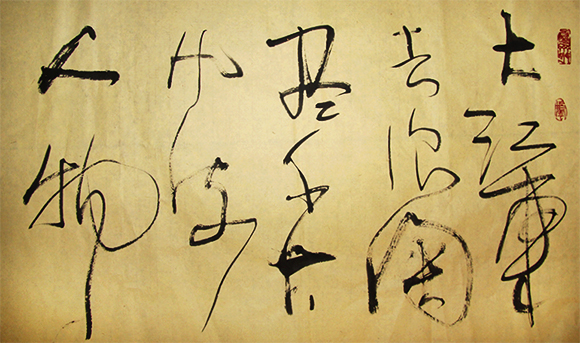 大江東
去浪淘
盡千古
風流
人物